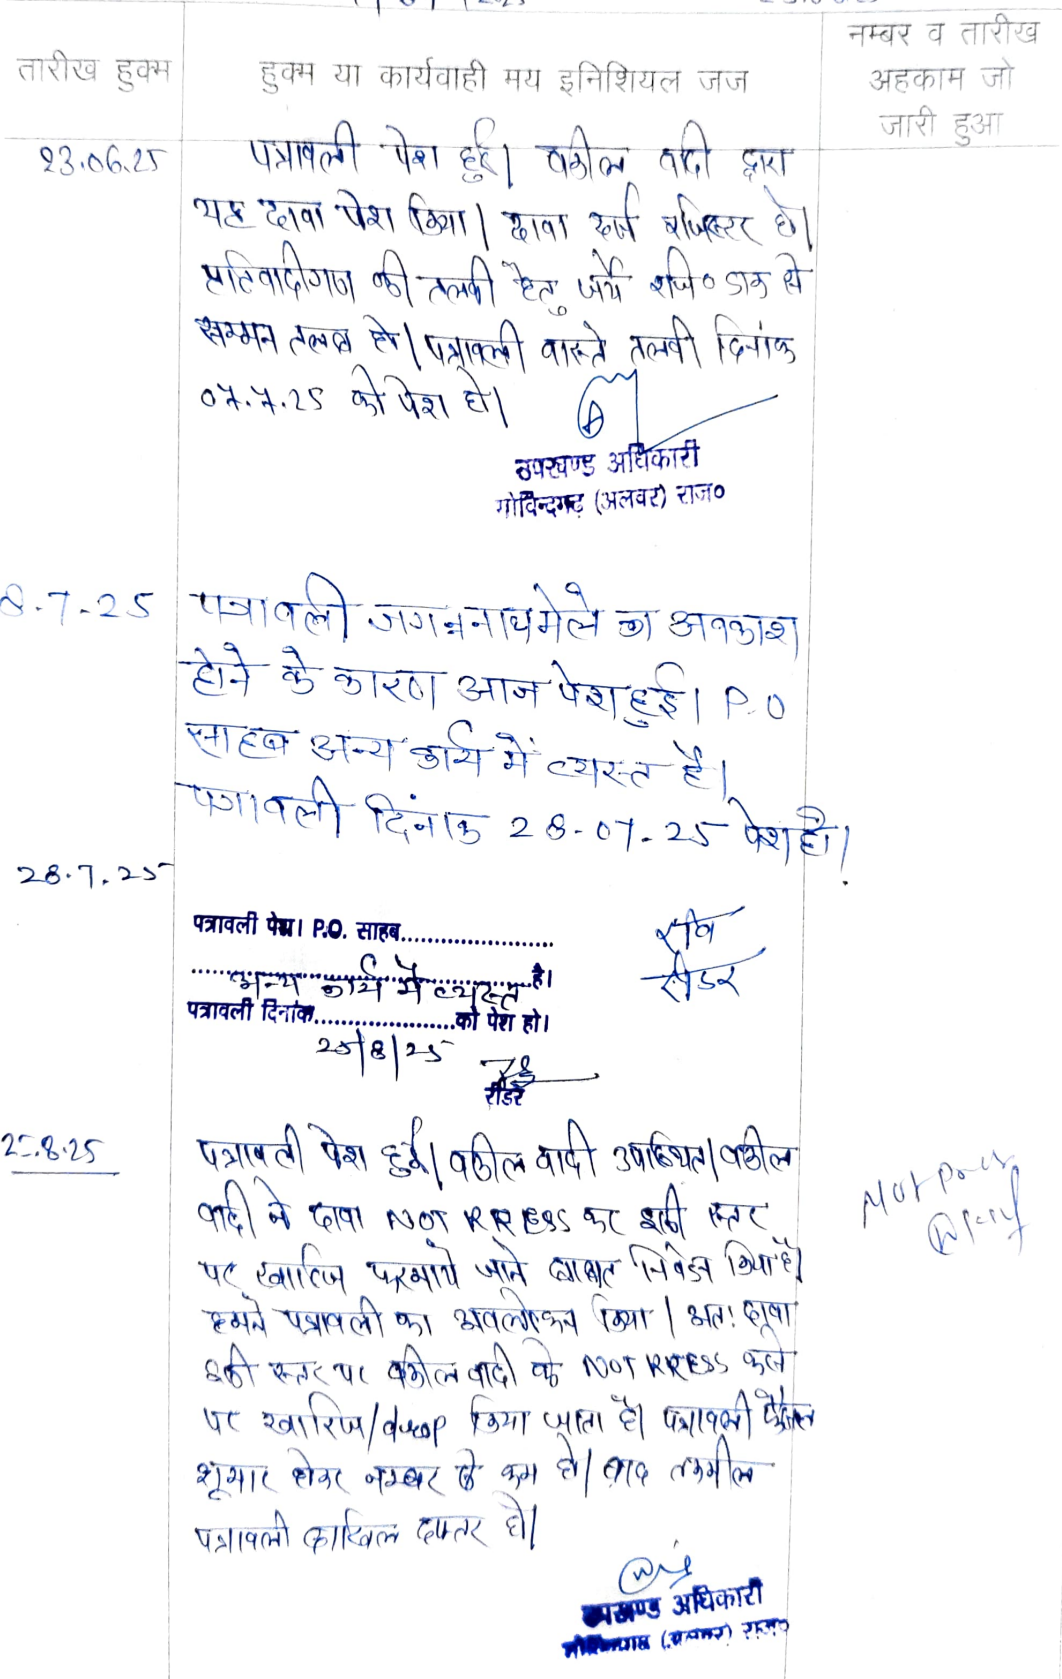 तारीख हुक्म
हुक्म या कार्यवाही मय इनिशियल जज
नम्बर व तारीख
अहकाम जो
जारी हुआ
23.06.25
पत्रावली पेश हुई। वकील वादी द्वारा
यह दावा पेश किया। दावा दर्ज रजिस्टर हो।
प्रतिवादीगण की तलबी हेतु जर्ये रजि० डाक से
सम्मन तलब हो। पत्रावली वास्ते तलबी दिनांक
07.7.25 को पेश हो।
उपखण्ड अधिकारी
गोविन्दगढ़ (अलवर) राज०
8-7-25
पत्रावली जगन्ननाथ मेले का अवकाश
होने के कारण आज पेश हुई। P.O
साहब अन्य कार्य में व्यस्त है।
पत्रावली दिनांक 28-07-25 पेश हो।
28.7.25
पत्रावली पेश। P.O. साहब..........................
अन्य कार्य में व्यस्त है।
पत्रावली दिनांक.......................को पेश हो।
25/8/25
रीडर
रवि
रीडर
25.8.25
पत्रावली पेश हुई। वकील वादी उपस्थित। वकील
वादी ने दावा NOT RRESS कर इसी स्तर
पर खारिज फरमाये जाने बाबत निवेदन किया है।
हमने पत्रावली का अवलोकन किया। अतः दावा
इसी स्तर पर वकील वादी के NOT RRESS करने
पर खारिज/drop किया जाता है। पत्रावली फैसल
शूमार होकर नम्बर से कम हो। बाद तकमील
पत्रावली दाखिल दफ्तर हो।
Not
उपखण्ड अधिकारी
गोविन्दगढ़ (अलवर) राज०